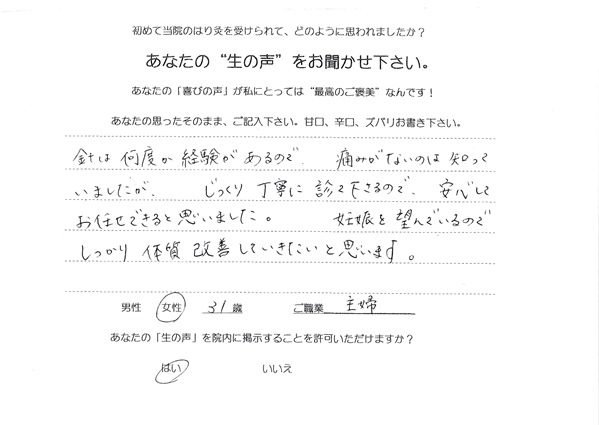 初めて当院のはり灸を受けられて、どのように思われましたか？
あなたの“生の声”をお聞かせ下さい。
あなたの「喜びの声」が私にとっては“最高のご褒美”なんです！
あなたの思ったそのまま、ご記入下さい。甘口、辛口、ズバリお書き下さい。
針は何度か経験があるので、痛みがないのは知って
いましたが、じっくり丁寧に診て下さるので、安心して
お任せできると思いました。妊娠を望んでいるので
しっかり体質改善していきたいと思います。
男性 女性 31歳 ご職業 主婦
あなたの「生の声」を院内に掲示することを許可いただけますか？
はい いいえ